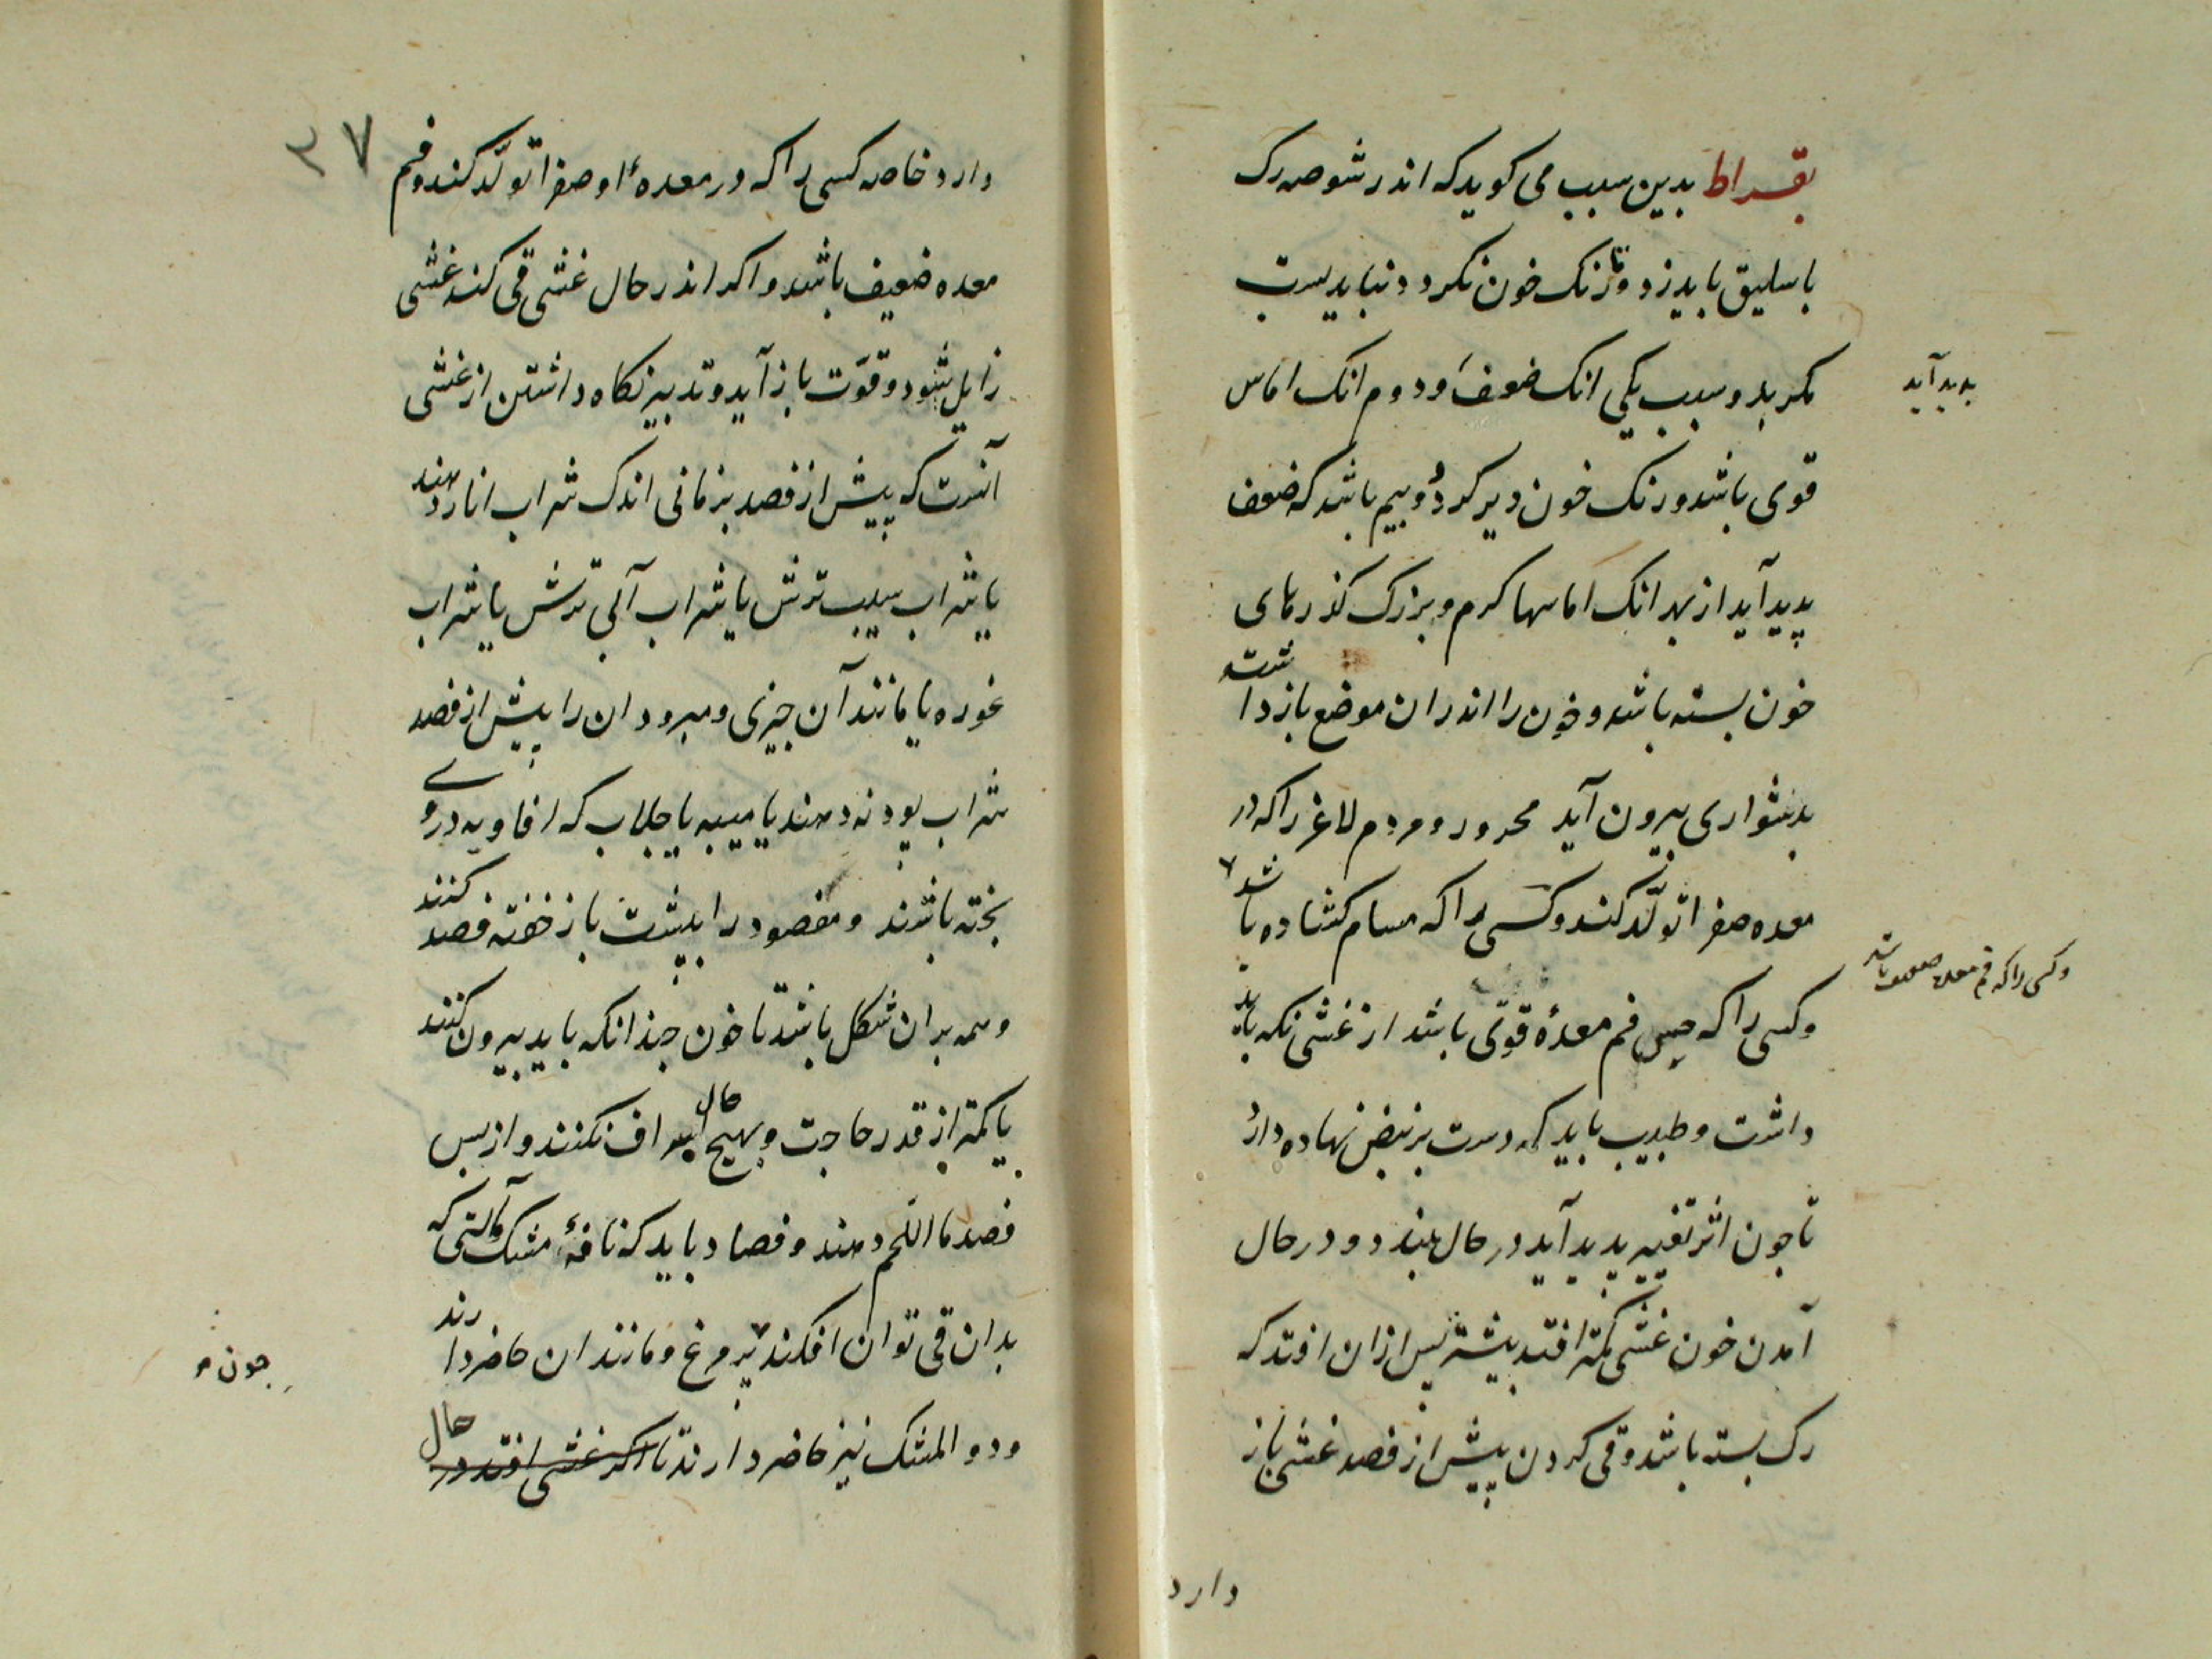 بقراط بدین سبب می کوید که اندر شوصه رک
باسلیق باید زد و تا رنک خون نکردد نباید بست
مکر بدو سبب یکی انک ضعف و دوم انک اماس
بدید آید
قوی باشد و رنک خون دیر کردد و بیم باشد که ضعف
پدید آید از بهر انک اماسها کرم و بزرک کذرهای
خون بسته باشد و خون را اندران موضع بازداشته
بدشواری بیرون آید محرور و مردم لاغر را که در
معده صفرا تولّد کند و کسی را که مسام کشاده باشد
وکسی را که فم معده ضعیف باشد
و کسی را که حس فم معدهٔ قوی باشد از غشی نکه باید
داشت و طبیب باید که دست بر نبض نهاده دارد
تا جون اثر تغییر پدید آید در حال ببندد و در حال
آمدن خون غشی کمتر افتد بیشتر پس ازان افتد که
رک بسته باشد و قی کردن پیش از فصد غشی باز
دارد
۳۷
دارد خاصه کسی را که در معدهٔ او صفرا تولّد کند و فم
معده ضعیف باشد و اکر اندر حال غشی قی کند غشی
زایل شود و قوّت باز آید و تدبیر نکاه داشتن از غشی
آنست که پیش از فصد بزمانی اندک شراب انار دهند
یا شراب سیب ترش یا شراب آبی ترش یا شراب
غوره یا مانند آن جیزی و مبرودان را پیش از فصد
شراب بودنه دهند یا میبه یا جلاب که افاویه در وی
بخته باشند و مفصود را بپشت باز خفته فصد کنند
و همه بران شکل باشد تا خون جندانکه باید بیرون کنند
یا کمتر از قدر حاجت و بهیج حال اسراف نکنند و از بس
فصد ما اللحم دهند و فصاد باید که نافهٔ مشک و آلتی که
بدان قی توان افکند پر مرغ و مانند ان حاضر دارند
جون
و دوا المشک نیز حاضر دارند تا اکر غشی افتد در حال